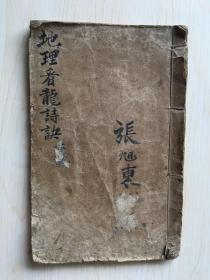 地理看龍詩訣
張旭裏